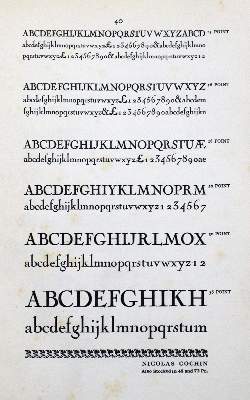 40
ABCDEFGHIJKLMNOPQRSTUVWXYZABCD
abcdefghijklmnopqrstuvwxyz£1234567890&abcdefghijkl
mnopqrstuvwxyz£1234567890&abcdefghijklmnop
ABCDEFGHIJKLMNOPQRSTUVWXYZ
abcdefghijklmnopqrstuvwxyz£1234567890&abcdem
fghijklmnopqrstuvwxyz£1234567890&abcdefghijkln
ABCDEFGHIJKLMNOPQRSTUÆ
abcdefghijklmnopqrstuvwxyz£1234567890æ
ABCDEFGHIYKLMNOPRM
abcdefghijklmnopqrstuvwxyz1234567
ABCDEFGHIJRLMOX
abcdefghijklmnopqrstuvwxyz12
ABCDEFGHIKH
abcdefghijklmnopqrstum
NICOLAS COCHIN
Also Stocked in 48 and 72 Pt.